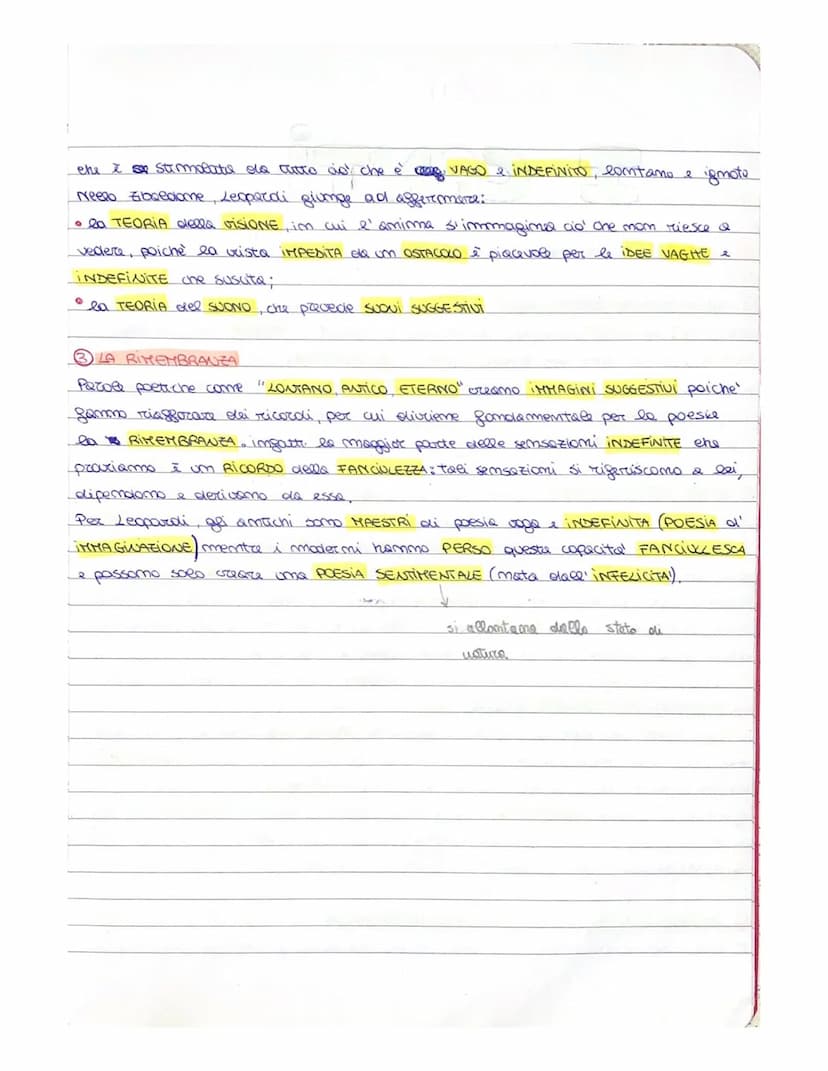 che è stimolata da tutto ciò che è VAGO e INDEFINITO, lontano e ignoto
Nello Zibaldone, Leopardi giunge ad affermare:
• la TEORIA della VISIONE, in cui l'anima s'immagina ciò che non riesce a
vedere, poiché la vista IMPEDITA da un OSTACOLO è piacevole per le IDEE VAGHE e
INDEFINITE che suscita;
• la TEORIA del SUONO, che prevede SUONI SUGGESTIVI
③ LA RIMEMBRANZA
Parole poetiche come "LONTANO, ANTICO, ETERNO" creano IMMAGINI SUGGESTIVI poiché
fanno riaffiorare dei ricordi, per cui diviene fondamentale per la poesia
la RIMEMBRANZA. infatti la maggior parte delle sensazioni INDEFINITE che
proviamo è un RICORDO della FANCIULEZZA: tali sensazioni si riferiscono a lei,
dipendono e derivano da essa.
Per Leopardi, gli antichi sono MAESTRI di poesia vaga e INDEFINITA (POESIA d'
IMMAGINAZIONE) mentre i moderni hanno PERSO questa capacità FANCIULLESCA
e possono solo creare una POESIA SENTIMENTALE (nata dall'INFELICITÀ).
si allontana dallo stato di
natura